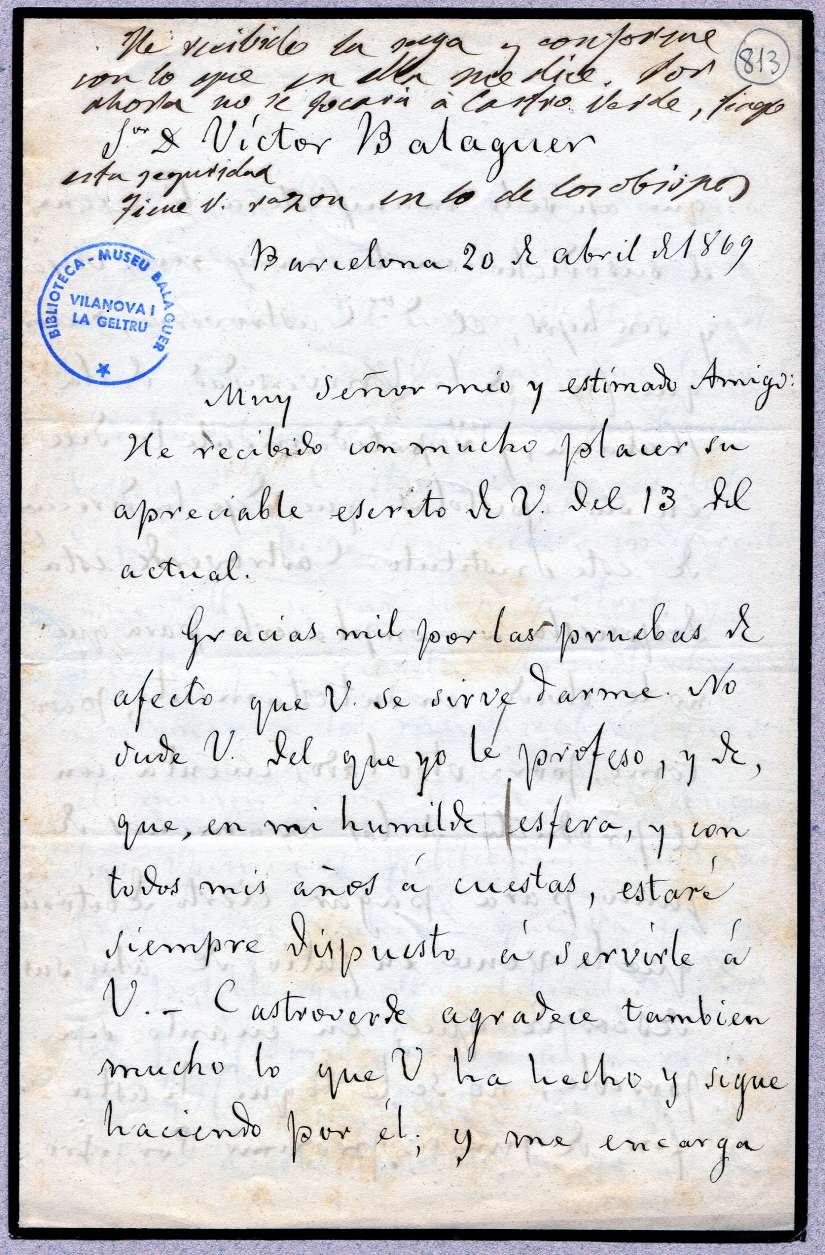 He recibido la suya y conforme
con lo que en ella me dice. Por
ahora no se tocará a Castro Verde, tenga
813
Sor D Víctor Balaguer
esta seguridad
Tiene V. razon en lo de los obispos
Barcelona 20 de abril de 1869
BIBLIOTECA - MUSEU BALAGUER
VILANOVA I
LA GELTRU
Muy Señor mio y estimado Amigo:
He recibido con mucho placer su
apreciable escrito de V. del 13 del
actual.
Gracias mil por las pruebas de
afecto que V. se sirve darme. No
dude V. del que yo le profeso, y de,
que, en mi humilde esfera, y con
todos mis años á cuestas, estaré
siempre dispuesto á servirle á
V. - Castroverde agradece tambien
mucho lo que V ha hecho y sigue
haciendo por él; y me encarga